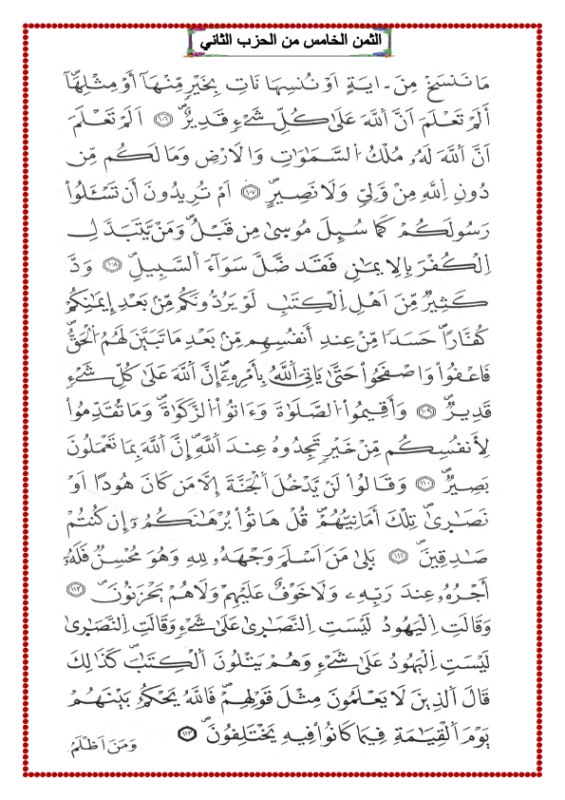 الثمن الخامس من الحزب الثاني
مَا نَنسَخْ مِنَ ـايَةٍ اَوْ نُنسِهَا نَاتِ بِخَيْرٍ مِّنْهَآ أَوْ مِثْلِهَآۖ
أَلَمْ تَعْلَمَ اَنَّ اَ۬للَّهَ عَلَىٰ كُلِّ شَےْءٖ قَدِيرٌۖ ١٠٦ اَلَمْ تَعْلَمَ
اَنَّ اَ۬للَّهَ لَهُۥ مُلْكُ اُ۬لسَّمَٰوَٰتِ وَالَارْضِ وَمَا لَكُم مِّن
دُونِ اِ۬للَّهِ مِنْ وَّلِيّٖ وَلَا نَصِيرٍۖ ١٠٧ اَمْ تُرِيدُونَ أَن تَسْـَٔلُواْ
رَسُولَكُمْ كَمَا سُئِلَ مُوسَىٰ مِن قَبْلُۖ وَمَنْ يَّتَبَدَّلِ
اِ۬لْكُفْرَ بِالِايمَٰنِ فَقَد ضَّلَّ سَوَآءَ اَ۬لسَّبِيلِۖ ١٠٨ وَدَّ
كَثِيرٌ مِّنَ اَهْلِ اِ۬لْكِتَٰبِ لَوْ يَرُدُّونَكُم مِّنۢ بَعْدِ إِيمَٰنِكُمْ
كُفَّاراً حَسَداٗ مِّنْ عِندِ أَنفُسِهِم مِّنۢ بَعْدِ مَا تَبَيَّنَ لَهُمُ اُ۬لْحَقُّۖ
فَاعْفُواْ وَاصْفَحُواْ حَتَّىٰ يَاتِيَ اَ۬للَّهُ بِأَمْرِهِۦٓۖ إِنَّ اَ۬للَّهَ عَلَىٰ كُلِّ شَےْءٖ
قَدِيرٌۖ ١٠٩ وَأَقِيمُواْ اُ۬لصَّلَوٰةَ وَءَاتُواْ اُ۬لزَّكَوٰةَۖ وَمَا تُقَدِّمُواْ
لِأَنفُسِكُم مِّنْ خَيْرٖ تَجِدُوهُ عِندَ اَ۬للَّهِۖ إِنَّ اَ۬للَّهَ بِمَا تَعْمَلُونَ
بَصِيرٌۖ ١١٠ وَقَالُواْ لَنْ يَّدْخُلَ اَ۬لْجَنَّةَ إِلَّا مَن كَانَ هُوداً اَوْ
نَصَٰرَىٰۖ تِلْكَ أَمَانِيُّهُمْۖ قُلْ هَاتُواْ بُرْهَٰنَكُمُۥٓ إِن كُنتُمْ
صَٰدِقِينَۖ ١١١ بَلَىٰ مَنَ اَسْلَمَ وَجْهَهُۥ لِلهِ وَهُوَ مُحْسِنٌ فَلَهُۥٓ
أَجْرُهُۥ عِندَ رَبِّهِۦ وَلَا خَوْفٌ عَلَيْهِمْ وَلَا هُمْ يَحْزَنُونَۖ ١١٢
وَقَالَتِ اِ۬لْيَهُودُ لَيْسَتِ اِ۬لنَّصَٰرَىٰ عَلَىٰ شَےْءٖ وَقَالَتِ اِ۬لنَّصَٰرَىٰ
لَيْسَتِ اِ۬لْيَهُودُ عَلَىٰ شَےْءٖ وَهُمْ يَتْلُونَ اَ۬لْكِتَٰبَۖ كَذَٰلِكَ
قَالَ اَ۬لذِينَ لَا يَعْلَمُونَ مِثْلَ قَوْلِهِمْۖ فَاللَّهُ يَحْكُمُ بَيْنَهُمْ
يَوْمَ اَ۬لْقِيَٰمَةِ فِيمَا كَانُواْ فِيهِ يَخْتَلِفُونَۖ ١١٣ وَمَنَ اَظْلَمُ